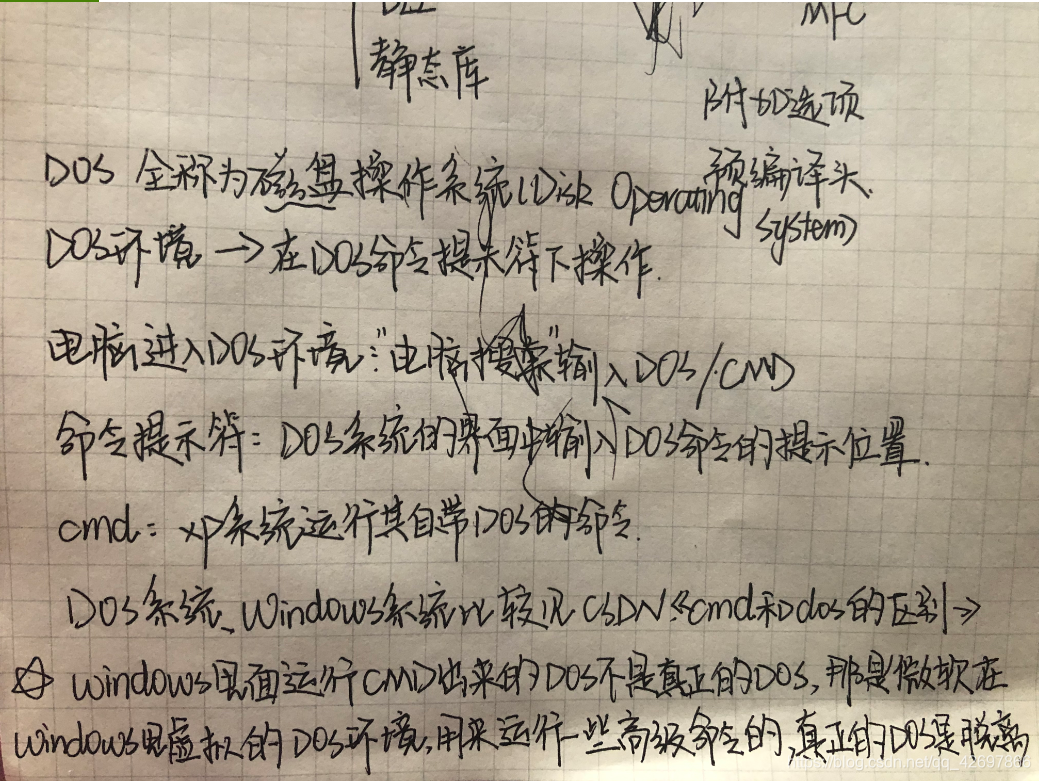 DLL
MFC
静态库
附加选项
预编译头.
DOS 全称为磁盘操作系统(Disk Operating
System)
DOS环境 → 在DOS命令提示符下操作.
电脑进入DOS环境:"电脑搜索"输入DOS/CMD
命令提示符: DOS系统的界面中输入DOS命令的提示位置.
cmd: xp系统运行其自带DOS的命令.
DOS系统、Windows系统比较见CSDN《cmd和dos的区别》
☆ windows里面运行CMD出来的DOS不是真正的DOS,那是微软在
windows里虚拟的DOS环境,用来运行一些高级命令的,真正的DOS是脱离
https://blog.csdn.net/qq_42697866